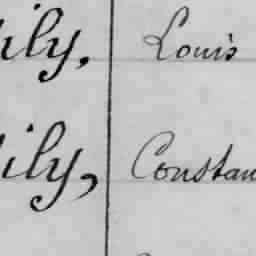 ily, Louis
ily, Constan